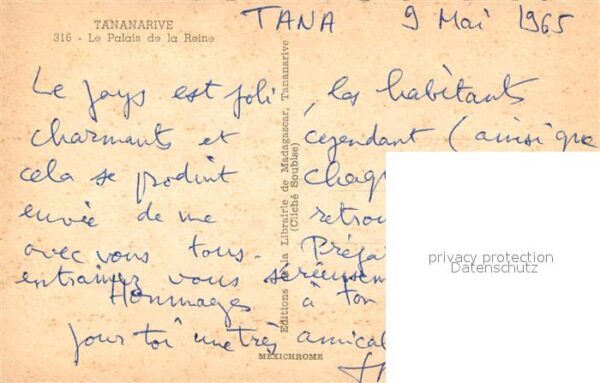 TANANARIVE
316 - Le Palais de la Reine
TANA 9 Mai 1965
Le pays est joli, les habitants
charmants et cependant (ainsi que
cela se produit chaq
envie de me retrou
avec vous tous. Prépa
entraînez vous sérieusem
Hommages à ton
pour toi une très amical
Editions de la Librairie de Madagascar, Tananarive
(Cliché Soubise)
MEXICHROME
privacy protection
Datenschutz